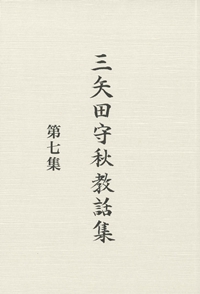 三矢田守秋教話集
第七集